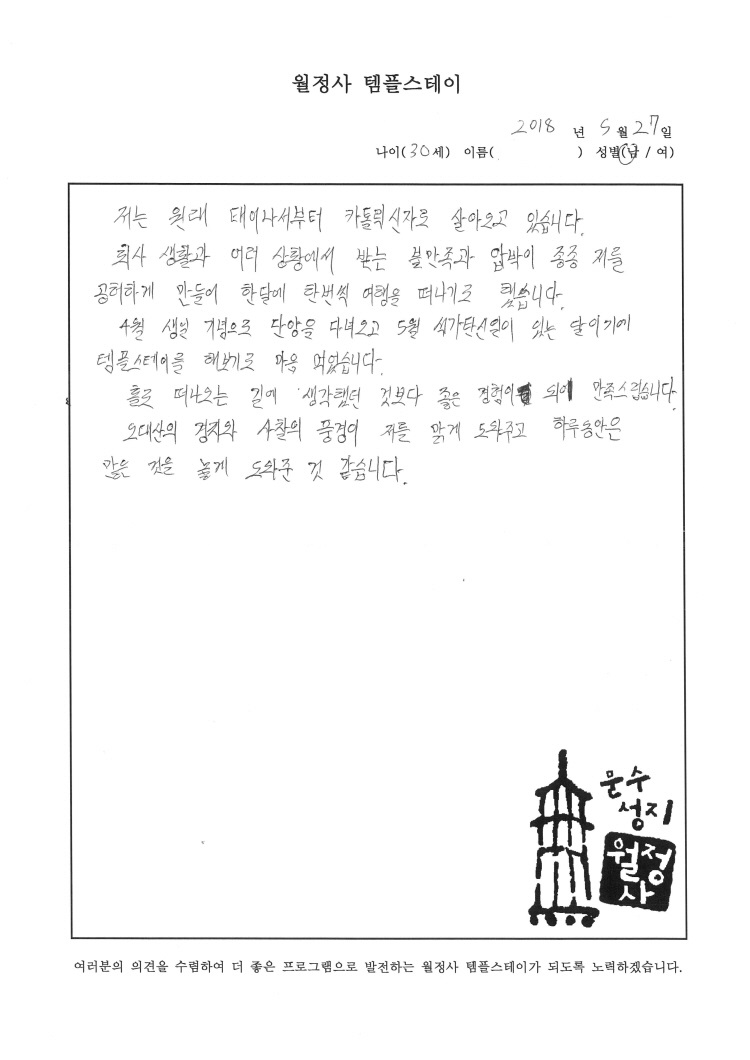 월정사 템플스테이
2018 년 5 월 27 일
나이(30세) 이름( ) 성별(남 / 여)
저는 원래 태어나서부터 카톨릭신자로 살아오고 있습니다.
회사 생활과 여러 상황에서 받는 불만족과 압박이 종종 저를
공허하게 만들어 한달에 한번씩 여행을 떠나기로 했습니다.
4월 생일 기념으로 단양을 다녀오고 5월 석가탄신일이 있는 달이기에
템플스테이를 해보기로 마음 먹었습니다.
홀로 떠나오는 길에 생각했던 것보다 좋은 경험이 되어 만족스럽습니다.
오대산의 경치와 사찰의 풍경이 저를 맑게 도와주고 하루동안은
많은 것을 놓게 도와준 것 같습니다.
문수
성지
월정
사
여러분의 의견을 수렴하여 더 좋은 프로그램으로 발전하는 월정사 템플스테이가 되도록 노력하겠습니다.